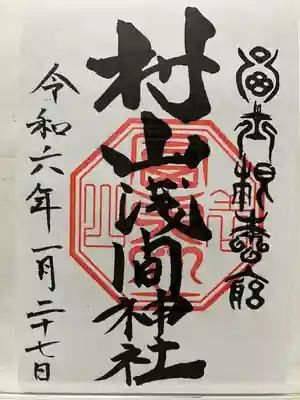 富士根本宮
村山浅間神社
令和六年一月二十七日